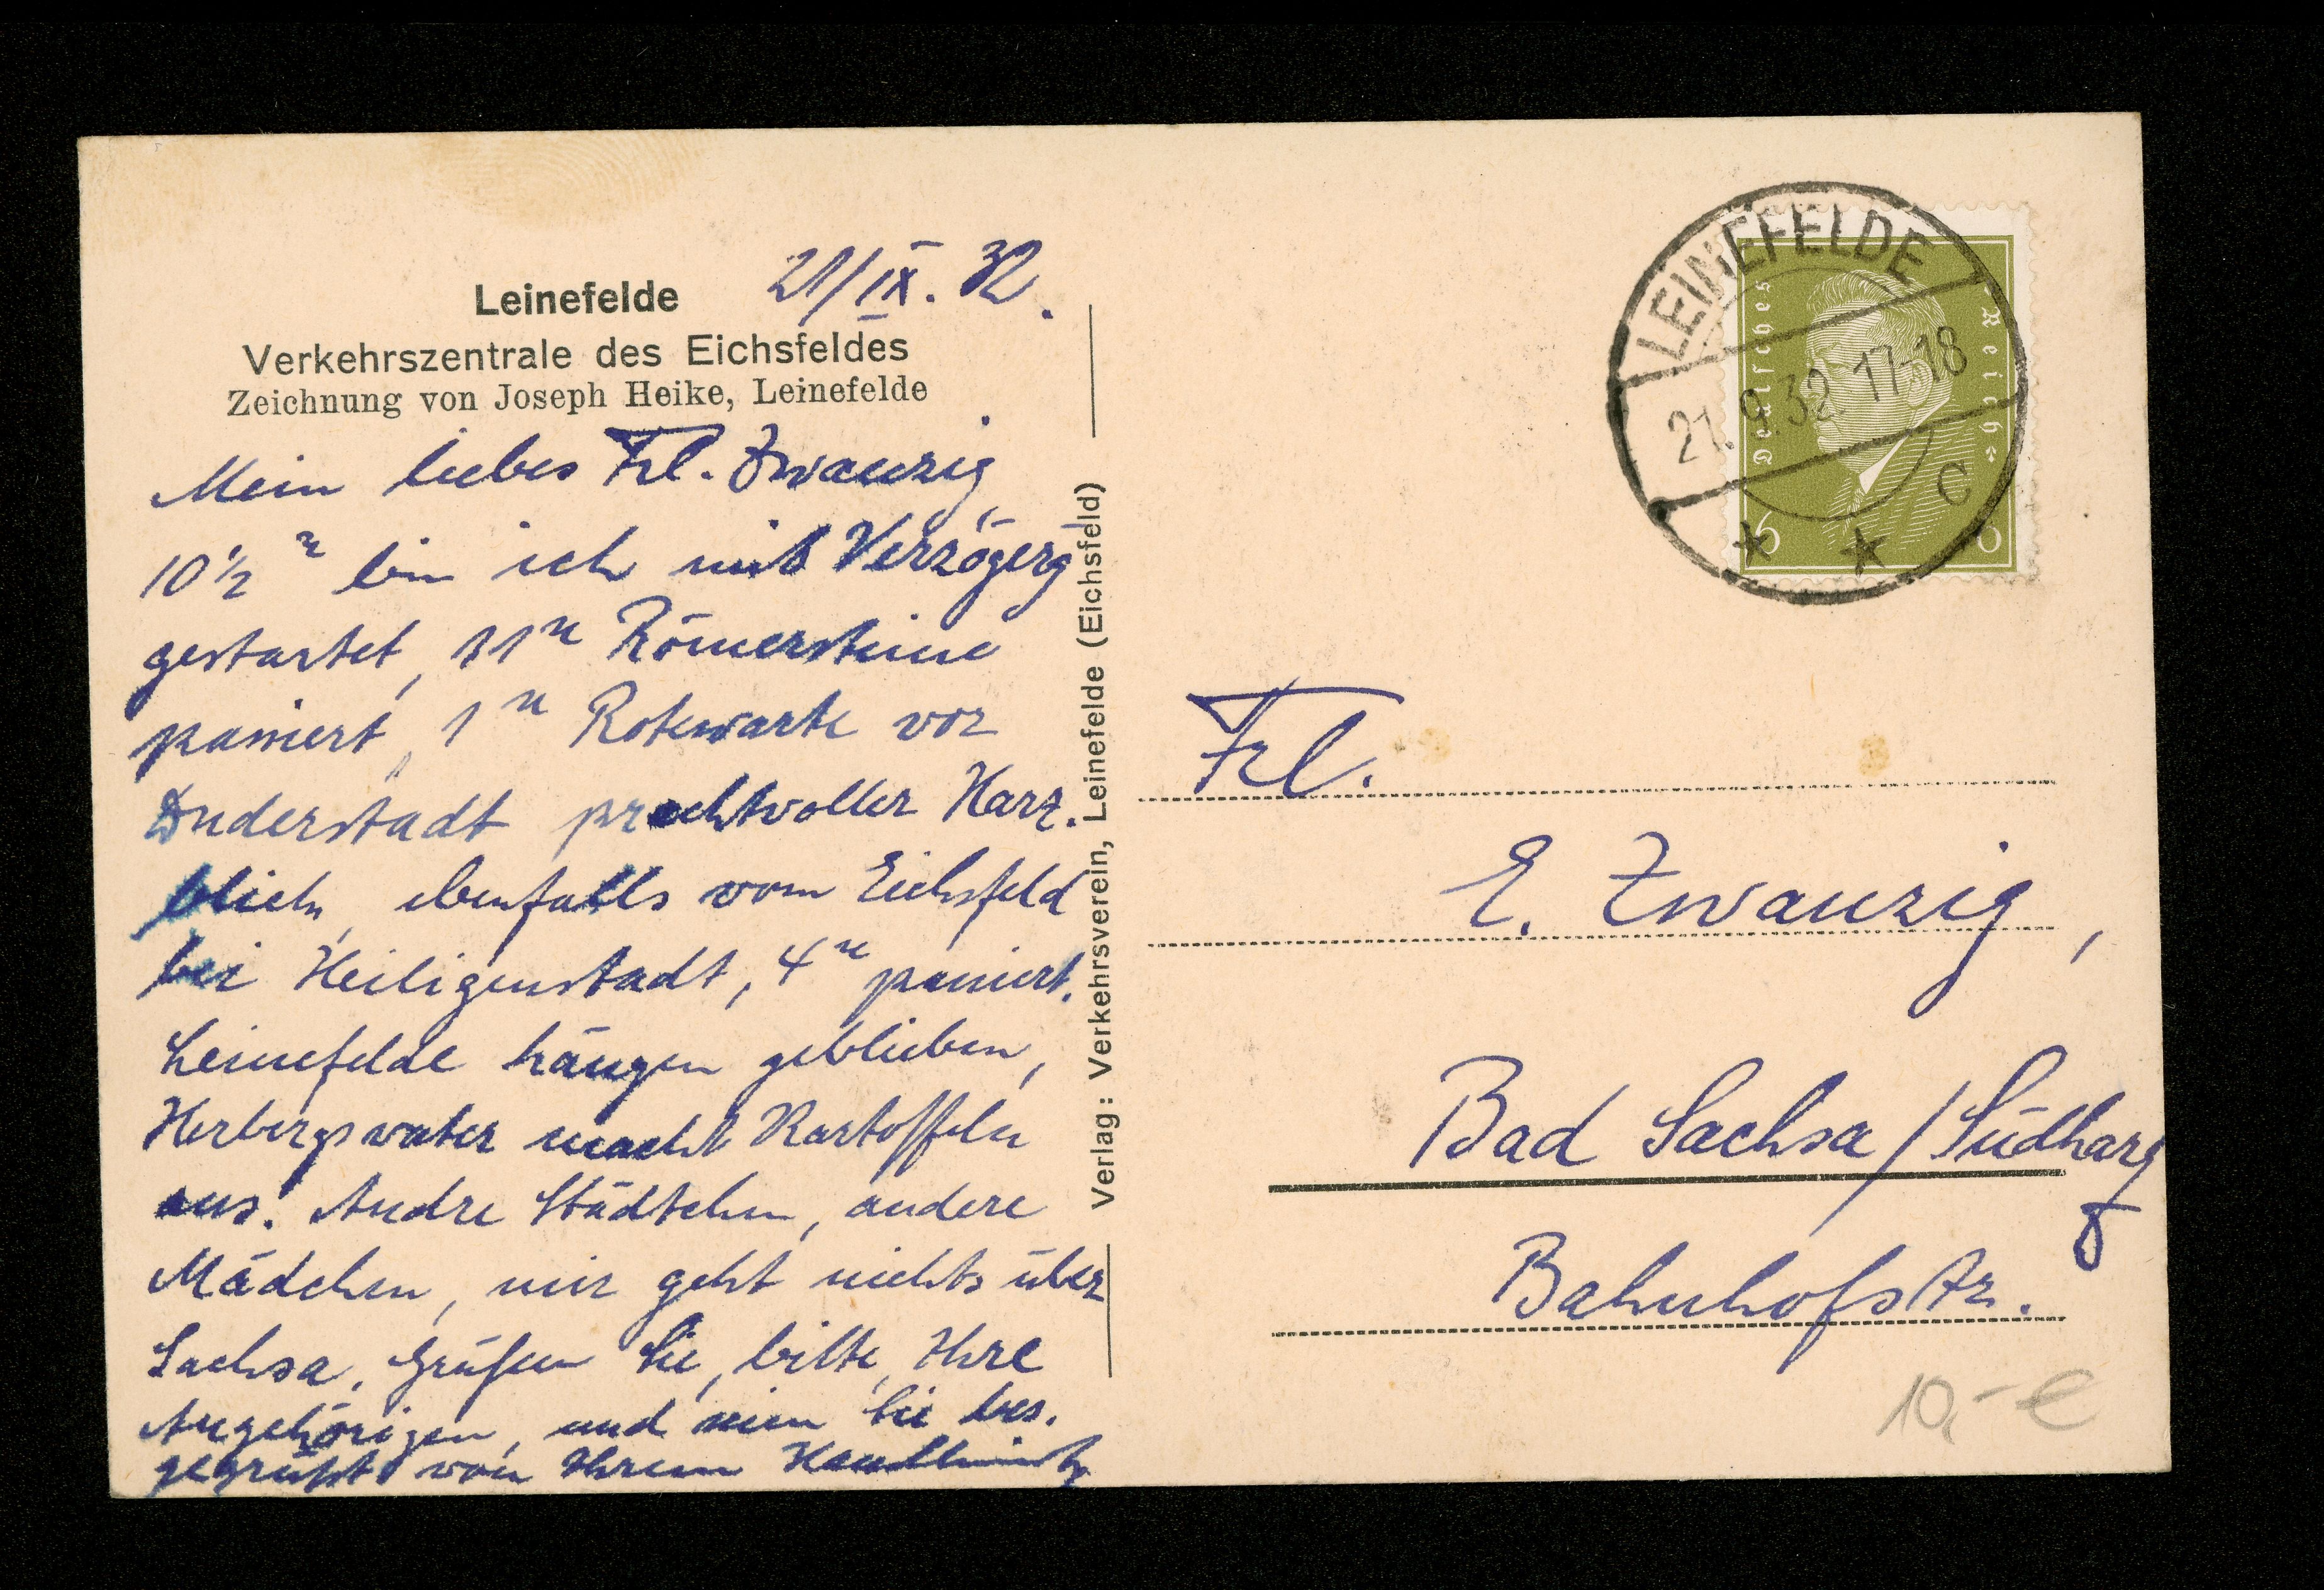 Leinefelde 21/IX. 32.
Verkehrszentrale des Eichsfeldes
Zeichnung von Joseph Heike, Leinefelde
Mein liebes Frl. Zwanzig,
10 1/2 u bin ich mit Verzögerg
gestartet, 11 u Römersteine
passiert, 1 u Rotewarte vor
Duderstadt prachtvoller Harz-
blick, ebenfalls vom Eichsfeld
bei Heiligenstadt, 4 u passiert.
Leinefelde hängen geblieben,
Herbergsvater macht Kartoffeln
aus. Andre Städtchen, andere
Mädchen, mir geht nichts über
Sachsa. Grüßen Sie, bitte, Ihre
Angehörigen, und seien Sie bes.
gegrüßt von Ihrem
Verlag: Verkehrsverein, Leinefelde (Eichsfeld)
LEINEFELDE
21.9.32.17-18
C
Deutsches Reich
6 6
Frl.
E. Zwanzig,
Bad Sachsa / Südharz
Bahnhofstr.
10,- €